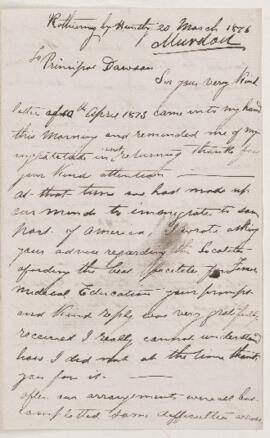 Rothiemay by Huntly 20 March 1876
Murdoch
To Principal Dawson
Sir your very kind
letter of 10th April 1873 came into my hand
this morning and reminded me of my
ingratitude in not returning thanks for
your kind attention
at that time we had made up
our minds to immigrate to some
part of America, I wrote asking
your advice regarding the Locality
affording the best facilities for
medical Education your prompt
and kind reply was very gratefully
received I really cannot understand
how I did not at the time thank
you for it —
after our arrangements were all but
completed some difficulties arose